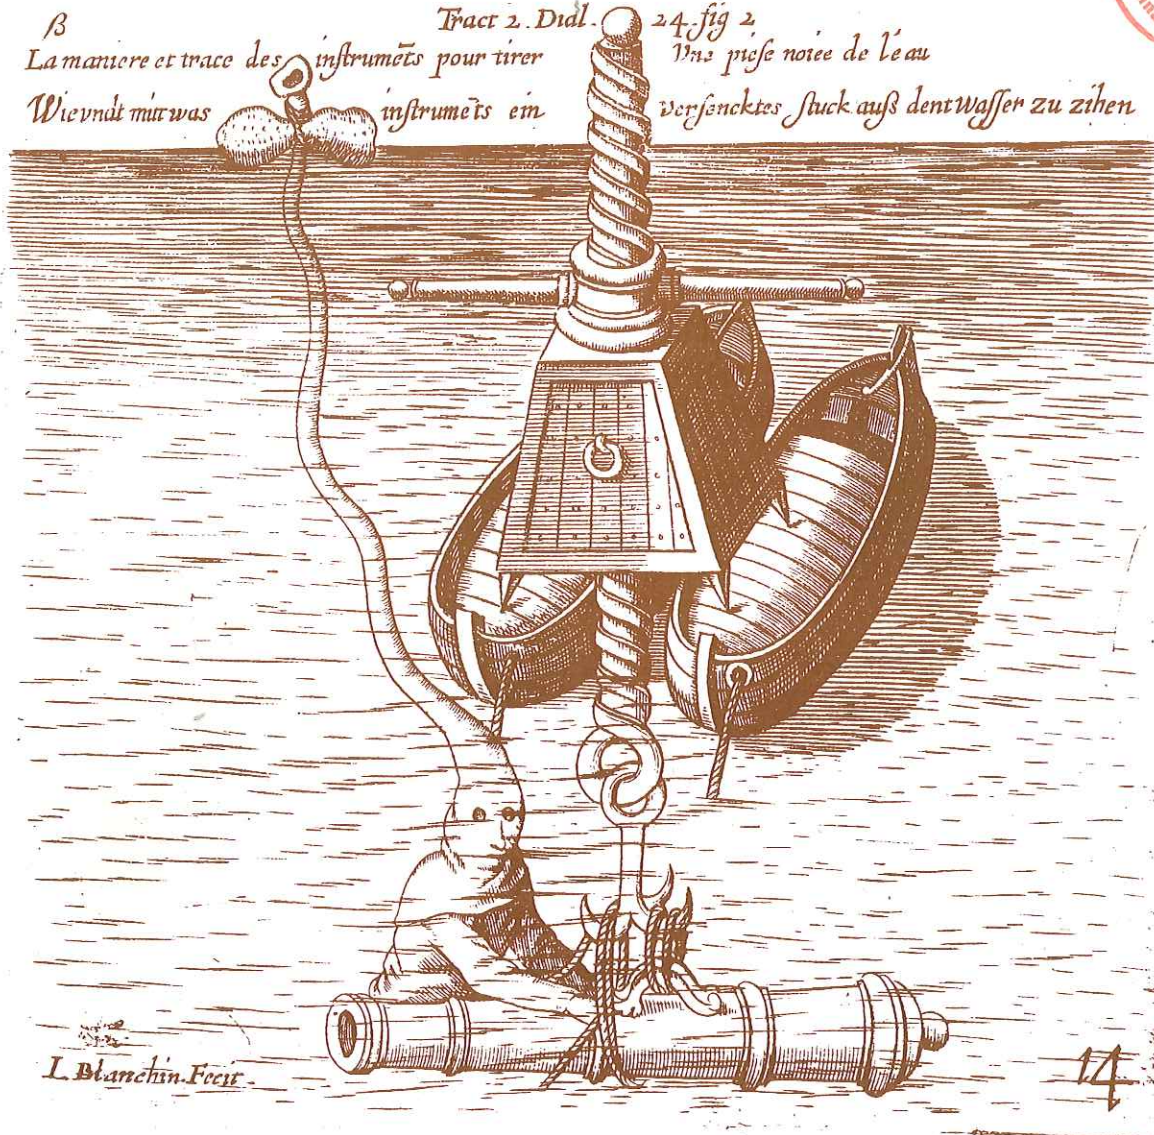 ß
Tract 2. Dial. 24. fig 2
La maniere et trace des instrumēts pour tirer Vne piese noiee de l'eau
Wie vndt mitt was instrumēts ein versencktes stuck auß dent wasser zu zihen
L. Blanchin. Fecit.
14